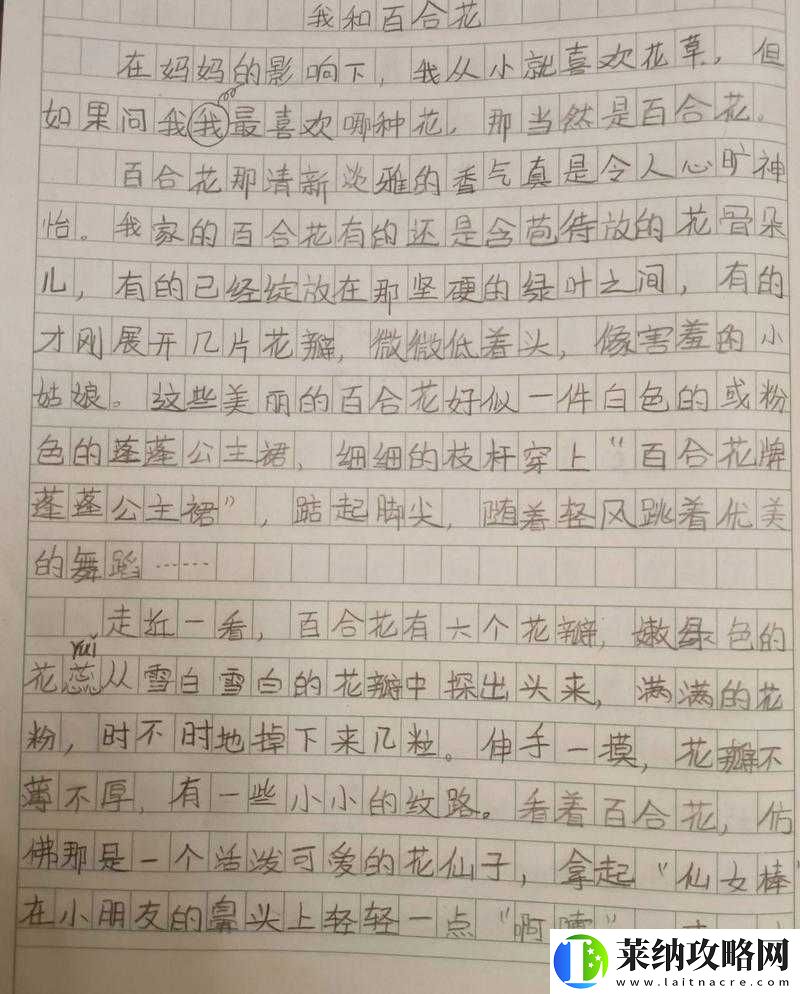 我和百合花
在妈妈的影响下，我从小就喜欢花草，但
如果问我我最喜欢哪种花，那当然是百合花。
百合花那清新淡雅的香气真是令人心旷神
怡。我家的百合花有的还是含苞待放的花骨朵
儿，有的已经绽放在那坚硬的绿叶之间，有的
才刚展开几片花瓣，微微低着头，像害羞的小
姑娘。这些美丽的百合花好似一件白色的或粉
色的蓬蓬公主裙，细细的枝杆穿上“百合花牌
蓬蓬公主裙”，踮起脚尖，随着轻风跳着优美
的舞蹈……
走近一看，百合花有六个花瓣，嫩绿色的
ruǐ
花蕊从雪白雪白的花瓣中探出头来，满满的花
粉，时不时地掉下来几粒。伸手一摸，花瓣不
薄不厚，有一些小小的纹路。看着百合花，仿
佛那是一个活泼可爱的花仙子，拿起“仙女棒”
在小朋友的鼻头上轻轻一点“啊嚏”
莱纳攻略网
www.laitnacre.com